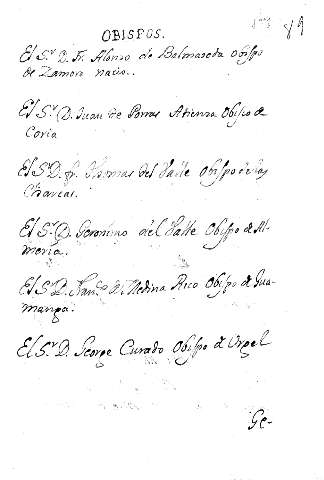 89
OBISPOS.
El S.r D. Fr. Alonso de Balmaseda obispo
de Zamora
El S.r D. Juan de Porras Atienza Obispo de
Coria
El S.r D. fr. Thomas del Valle obispo de las
Charcas.
El S.r D. Geronimo del Valle Obispo de Al-
meria.
El S.r D. Fran.co de Medina Rico Obispo de Gua-
manga.
El S.r D. George Curado Obispo de Urgel
Ge-